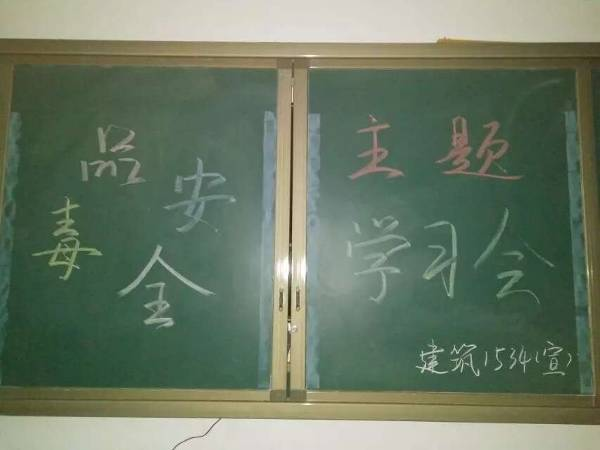 毒品安全
主题
学习会
建筑1534(宣)